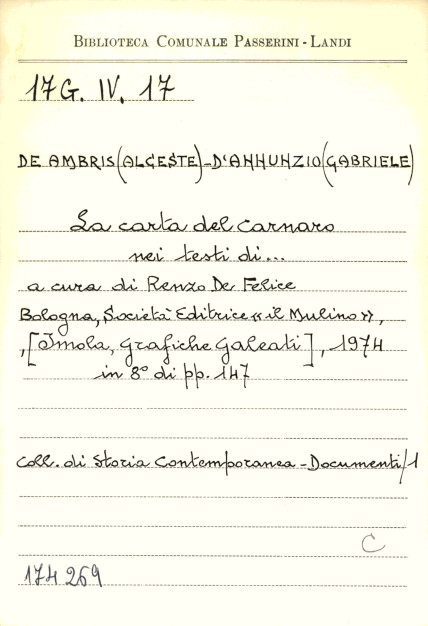 BIBLIOTECA COMUNALE PASSERINI - LANDI
17 G. IV. 17
DE AMBRIS (ALCESTE) - D'ANNUNZIO (GABRIELE)
La carta del Carnaro
nei testi di...
a cura di Renzo De Felice
Bologna, Società Editrice «il Mulino»,
, [Imola, Grafiche Galeati], 1974
in 8° di pp. 147
Coll. di Storia Contemporanea - Documenti/1
C
174269